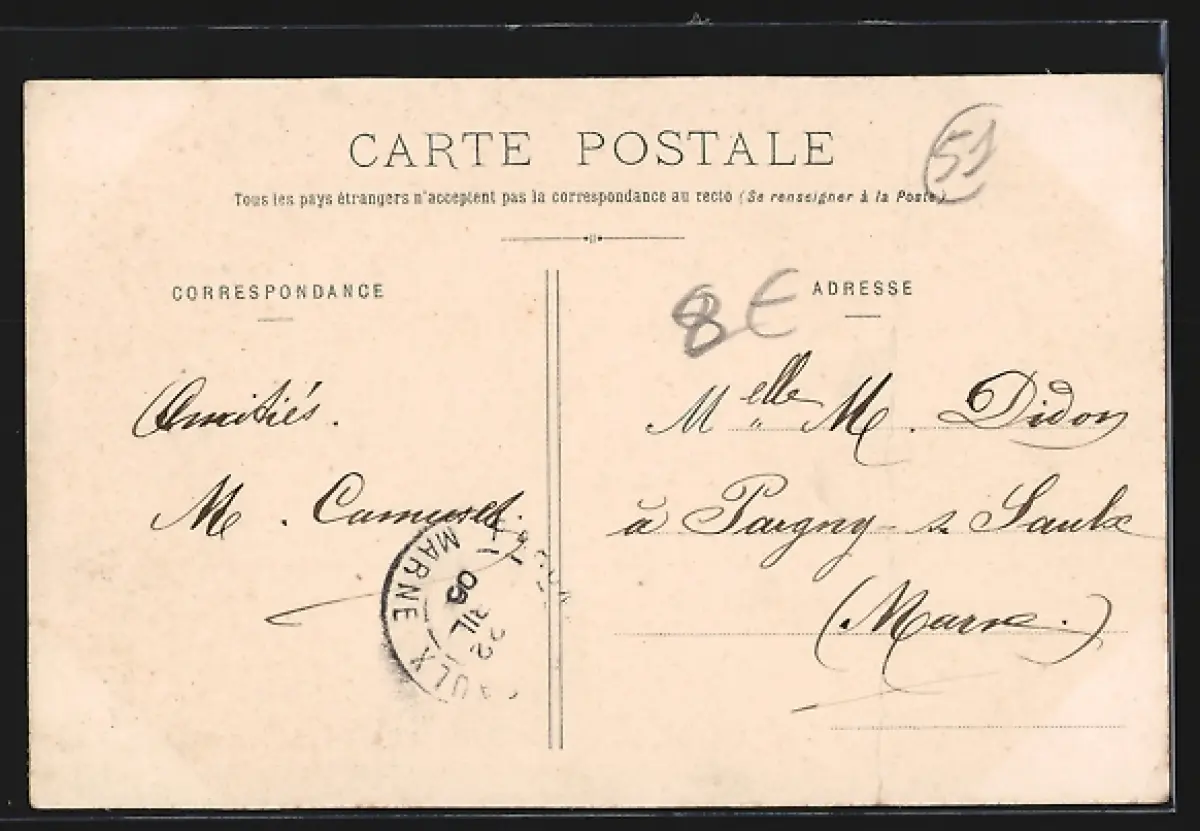 CARTE POSTALE
51
Tous les pays étrangers n'acceptent pas la correspondance au recto (Se renseigner à la Poste)
CORRESPONDANCE
8 €
ADRESSE
Amitiés.
M. Camuset.
Melle M. Didon
à Pargny-s. Saulx
(Marne.)
MARNE
22
06